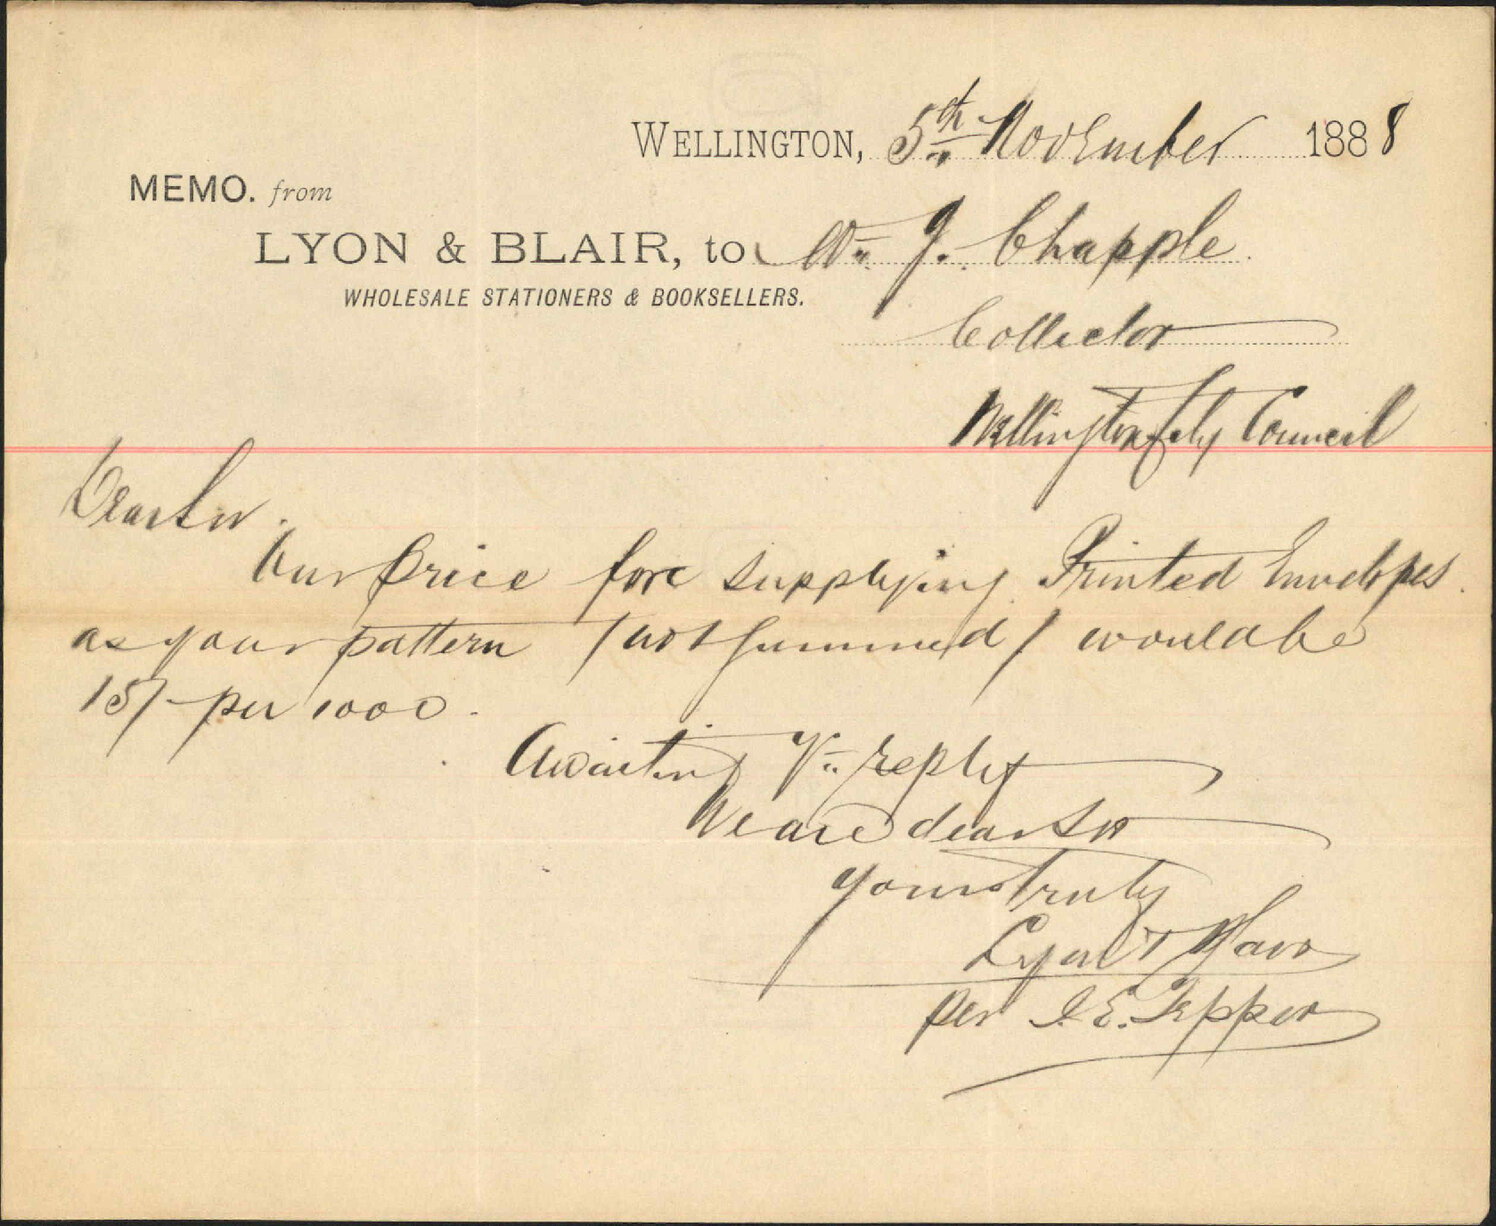 WELLINGTON, 5th November 1888
MEMO. from
LYON & BLAIR, to Wm J. Chapple
WHOLESALE STATIONERS & BOOKSELLERS.
Collector
Wellington City Council
Dear Sir.
Our Price for supplying Printed Envelopes.
as your pattern /not gummed/ would be
15/- per 1000.
Awaiting Yr reply
We are dear Sir
Yours truly
Lyon & Blair
per J. E.